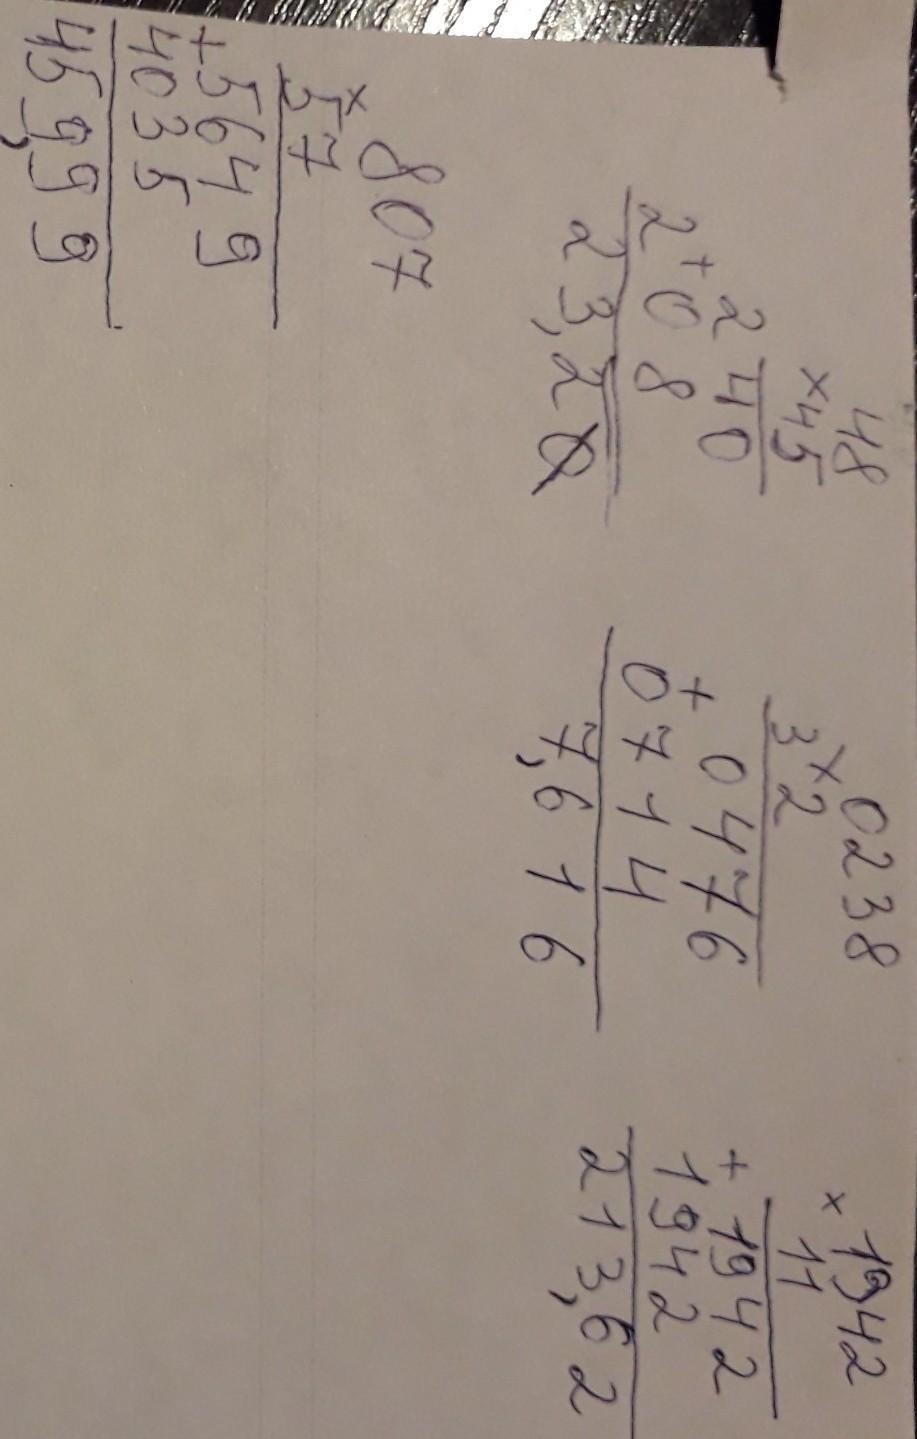 48
×45
240
+
208
23,20
0238
×
32
0476
+
0714
7,616
1942
×
11
1942
+
1942
213,62
807
×
57
5649
+
4035
459,99